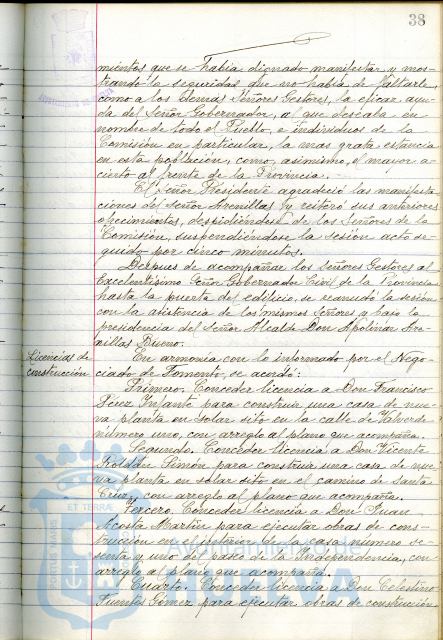 38
mientos que se había dignado manifestar y mos-
trando la seguridad que no había de faltarle,
como a los demás Señores Gestores, la eficaz ayu-
da del Señor Gobernador, al que deseaba en
nombre de todo el Pueblo, e individuos de la
Comisión en particular, la mas grata estancia
en esta población, como, asimismo, el mayor a-
cierto al frente de la Provincia.
El Señor Presidente agradeció las manifesta-
ciones del Señor Arenillas y reiteró sus anteriores
ofrecimientos, despidiéndose de los Señores de la
Comisión, suspendiéndose la sesión acto se-
guido por cinco minutos.
Despues de acompañar los Señores Gestores al
Excelentísimo Señor Gobernador Civil de la Provincia
hasta la puerta del edificio, se reanudó la sesión
con la asistencia de los mismos Señores y bajo la
presidencia del Señor Alcalde Don Apolinar Are-
nillas Bueno.
Licencias de
construcción
En armonía con lo informado por el Nego-
ciado de Fomento, se acordó:
Primero. Conceder licencia a Don Francisco
Pérez Infante para construir una casa de nue-
va planta en solar sito en la calle de Valverde
número uno, con arreglo al plano que acompaña.
Segundo. Conceder licencia a Don Vicente
Roldán Simón para construir una casa de nue-
va planta en solar sito en el camino de Santa
Cruz, con arreglo al plano que acompaña.
Tercero. Conceder licencia a Don Juan
Acosta Martín para ejecutar obras de cons-
trucción en el interior de la casa número se-
senta y uno del paseo de la Independencia, con
arreglo al plano que acompaña.
Cuarto. Conceder licencia a Don Celestino
Fuentes Gómez para ejecutar obras de construcción
PORTUS MARIS
ET TERRAE